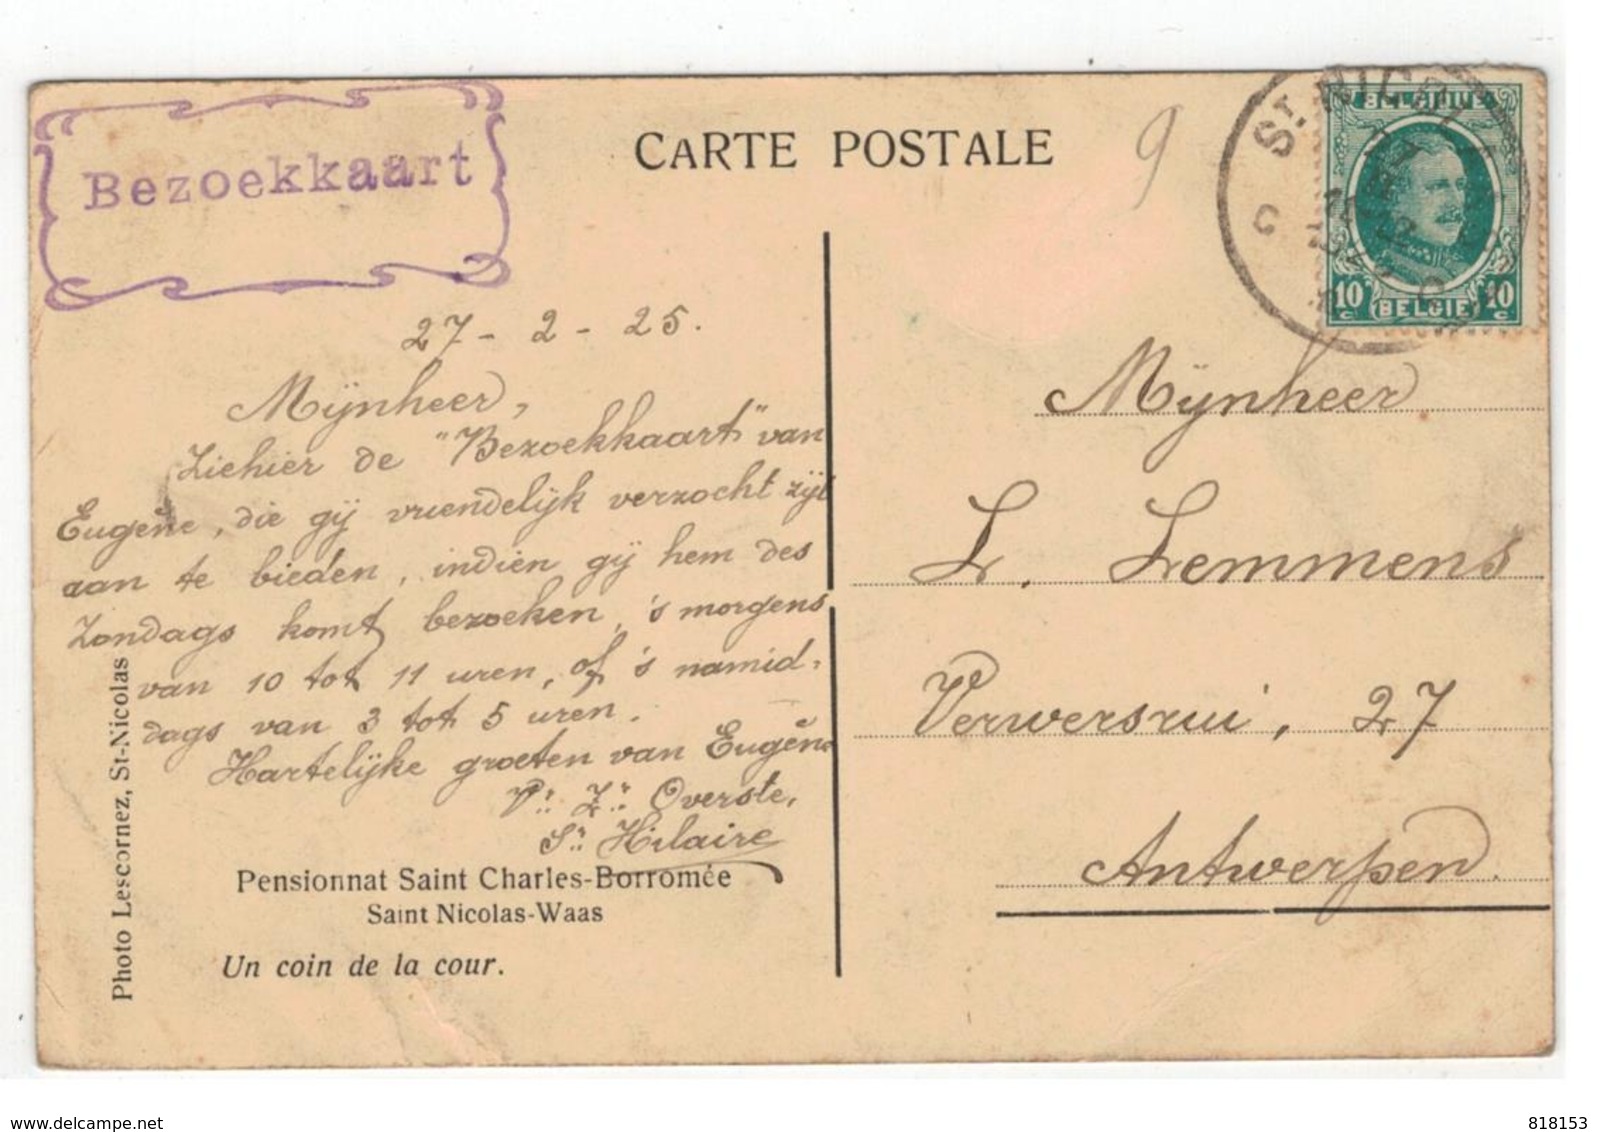 Bezoekkaart
CARTE POSTALE
9
BELGIQUE
10 c BELGIE 10 c
27 - 2 - 25.
Mijnheer,
Ziehier de "Bezoekkaart" van
Eugène, die gij vriendelijk verzocht zijt
aan te bieden, indien gij hem des
Zondags komt bezoeken, 's morgens
van 10 tot 11 uren, of 's namid-
dags van 3 tot 5 uren.
Hartelijke groeten van Eugène
Overste,
Sr. Hilaire
Pensionnat Saint Charles-Borromée
Saint Nicolas-Waas
Un coin de la cour.
Photo Lescornez, St-Nicolas
Mijnheer
L. Lemmens
Verwersrui, 27
Antwerpen.
delcampe.net
818153